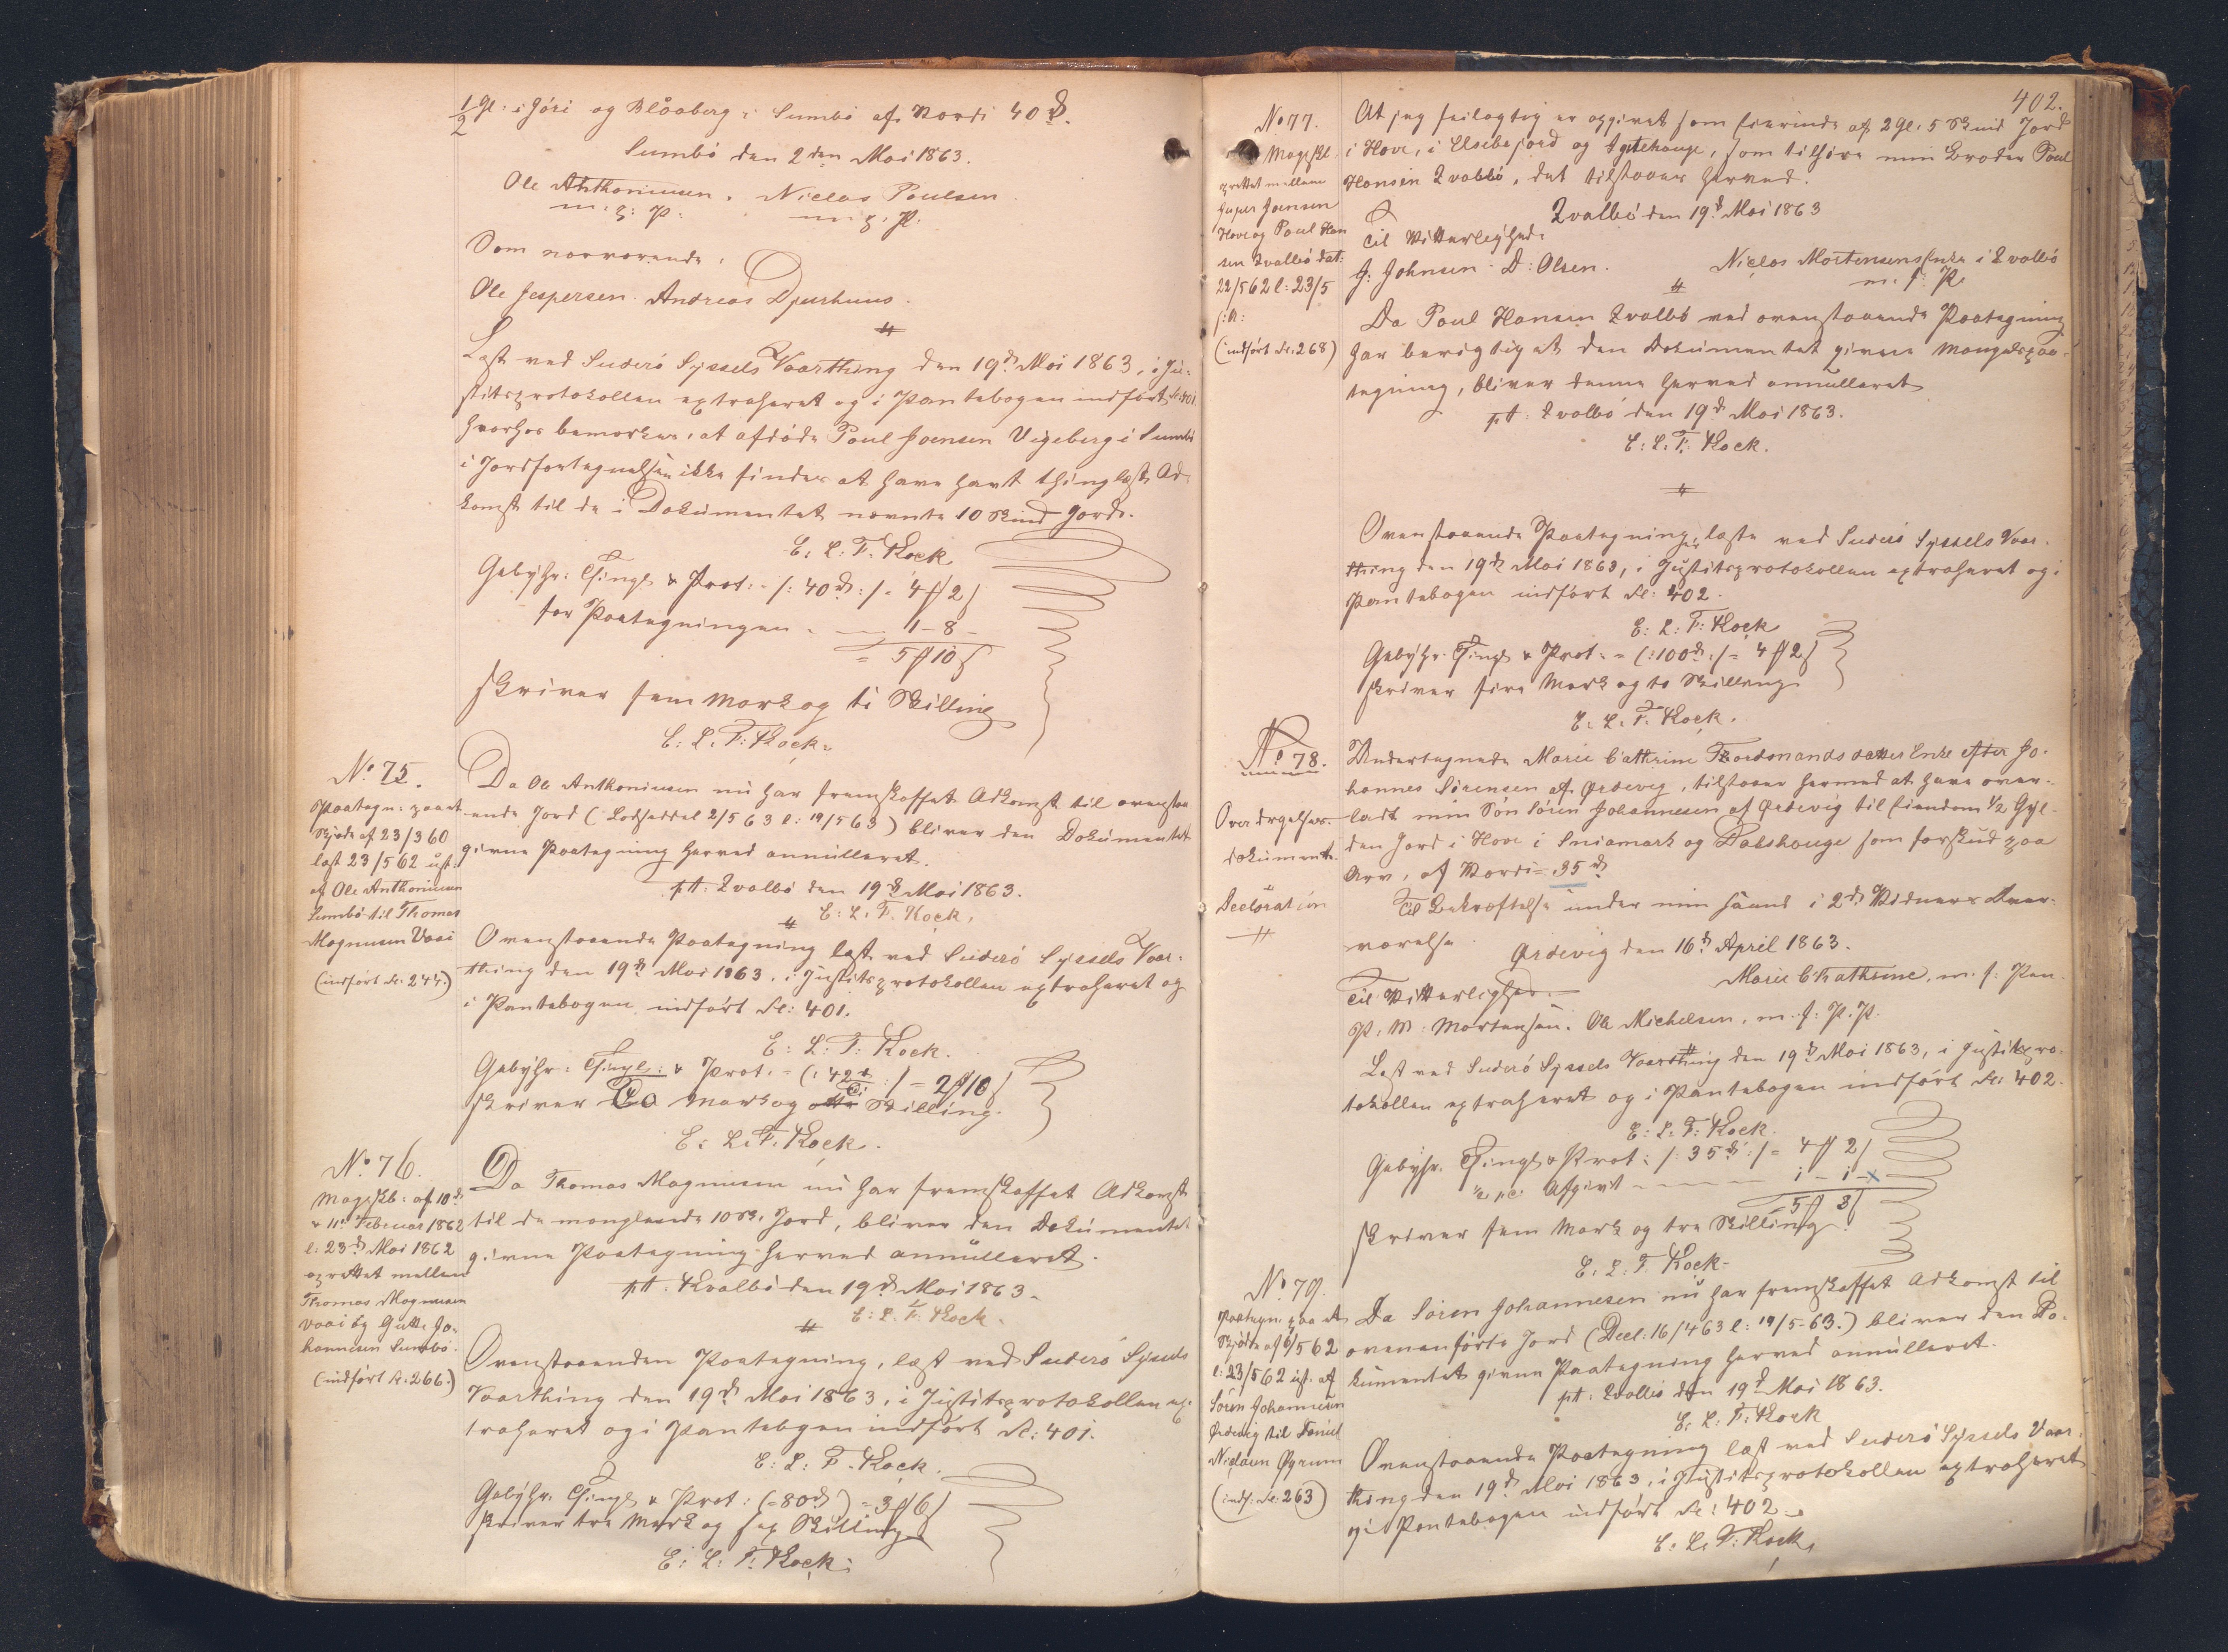 1/2 Gl: i Jóri og Blåaberg i Sumbö af Værdi 40 rd.
Sumbö den 2den Mai 1863.
Ole Anthoniusen. Niclas Poulsen
m: f: P: m: f: P.
Som nærværende:
Ole Jespersen. Andreas Djurhuus.
Læst ved Suderö Syssels Vaarthing den 19de Mai 1863, i Ju-
stitsprotokollen extraheret og i Pantebogen indfört Fol: 401.
hvorhos bemærkes, at afdöde Poul Joensen Vigeberg i Sumbö
i Jordfortegnelsen ikke findes at have havt thinglæst Ad-
komst til de i Dokumentet nævnte 10 Skind Jord.
E: L: F: Kock
Gebyhr: Thingl & Prot: /: 40 rd :/ = 4 ₰ 2 ſ
for Paategningen - 1 - 8 -
= 5 ₰ 10 ſ
skriver fem Mark og ti Skilling
E: L: F: Kock.
No 75.
Paategn: paa et
Skjöde af 23/3 60
læst 23/5 62 udst:
af Ole Anthoniusen
Sumbö til Thomas
Magnusen Vaai
(indfört Fol: 244.)
Da Ole Anthoniusen nu har fremskaffet Adkomst til ovenstaa-
ende Jord (Lodseddel 2/5 63 l: 19/5 63) bliver den Dokumentet
givne Paategning herved annulleret.
pt: Qvalbö den 19de Mai 1863.
E: L: F: Kock.
Ovenstaaende Paategning læst ved Suderö Syssels Vaar-
thing den 19de Mai 1863, i Justitsprotokollen extraheret og
i Pantebogen indfört Fol: 401.
E: L: F: Kock.
Gebyhr: Thingl: & Prot: = (: 42 rd :/ = 2 ₰ 10 ſ
skriver To Mark og otte ti Skilling.
E: L: F: Kock.
No 76.
Mageskb: af 10de
& 11te Februar 1862
l: 23de Mai 1862
oprettet mellem
Thomas Magnusen
Vaai og Gutte Jo-
hannesen Sumbö.
(indfört Fol: 266.)
Da Thomas Magnusen nu har fremskaffet Adkomst
til de manglende 10 Sk. Jord, bliver den Dokumentet
givne Paategning herved annulleret.
pt: Kvalbö den 19de Mai 1863.
E: L: F: Kock.
Ovenstaaenden Paategning, læst ved Suderö Syssels
Vaarthing den 19de Mai 1863, i Justitsprotokollen ex-
traheret og i Pantebgen indfört Fol: 401.
E: L: F: Kock.
Gebyhr. Thingl & Prot: (= 80 rd) = 3 ₰ 6 ſ
skriver tre Mark og sex Skilling
E: L: F: Kock.
402.
No 77.
Mageskb.
oprettet mellem
Joensen
Hove og Poul Han
sen Qvalbö dat:
22/5 62 l: 23/5
s: A:
(indfört Fol: 268)
At jeg feilagtig er opgivet som Eierinde af 2 Gl. 5 Skind Jord
i Hove, i og som tilhöre min Broder Poul
Hansen Qvalbö, det tilstaaes herved.
Qvalbö den 19de Mai 1863
Til Vitterlighed:
J: Johnsen. D: Olsen. Niclas Mortensens Enke i Qvalbö
m. f: P.
Da Poul Hansen Qvalbö ved ovenstaaende Paategning
har berigtiget den Dokumentet givne Mangelspaa-
tegning, bliver denne herved annulleret
pt: Qvalbö den 19de Mai 1863.
E: L: F: Kock.
Ovenstaaende Paategninger læste ved Suderö Syssels Vaar-
thing den 19de Mai 1863, i Justitsprotokollen extraheret og i
Pantebogen indfört Fol: 402.
E: L: F: Kock
Gebyhr. Thingl & Prot: = (: 100 rd :/ = 4 ₰ 2 ſ
skriver fire Mark og to Skilling.
E: L: F: Kock.
No 78.
Overdragelses-
dokument.
Declaration
Undertegnede Marie Cathrine Ferdinandsdatter Enke efter Jo-
hannes Sörensen af Ördevig, tilstaaer hermed at have over-
ladt min Sön Sören Johannesen af Ördevig til Eiendom 1/2 Gyl-
den Jord i Hove i og som forskud paa
Arv, af Værdi = 35 rd
Til Bekræftelse under min Haand i 2de Vidners Nær-
værelse
Ördevig den 16de April 1863.
Marie Cathrine, m. f: Pen
Til Vitterlighed.
P: M: Mortensen. Ole Michelsen, m. f: P. P.
Læst ved Suderö Syssels Vaarthing den 19de Mai 1863, i Justitspro-
tokollen extraheret og i Pantebogen indfört Fol: 402.
E: L: F: Kock.
Gebyhr. Thingl & Prot: /: 35 rd :/ = 4 ₰ 2 ſ
1/2 pc: Afgivt - - - - 1 - 1 - x
5 ₰ 3 ſ
skriver fem Mark og tre Skilling.
E: L: F: Kock.
No 79.
Paategn: paa et
Skjöde af 6/5 62
l: 23/5 62 udst. af
Sören Johannesen
Ördevig til Daniel
Niclasen Öyrum
(indf: Fol: 263)
Da Sören Johannesen nu har fremskaffet Adkomst til
ovenanförte Jord (Decl: 16/4 63 l: 19/5-63.) bliver den Do-
kumentet givne Paategning herved annulleret.
pt: Qvalbö den 19de Mai 1863.
E: L: F: Kock
Ovenstaaende Paategning læst ved Suderö Syssels Vaar-
thing den 19de Mai 1863, i Justitsprotokollen extraheret
og i Pantebogen indfört Fol: 402.
E: L: F: Kock.